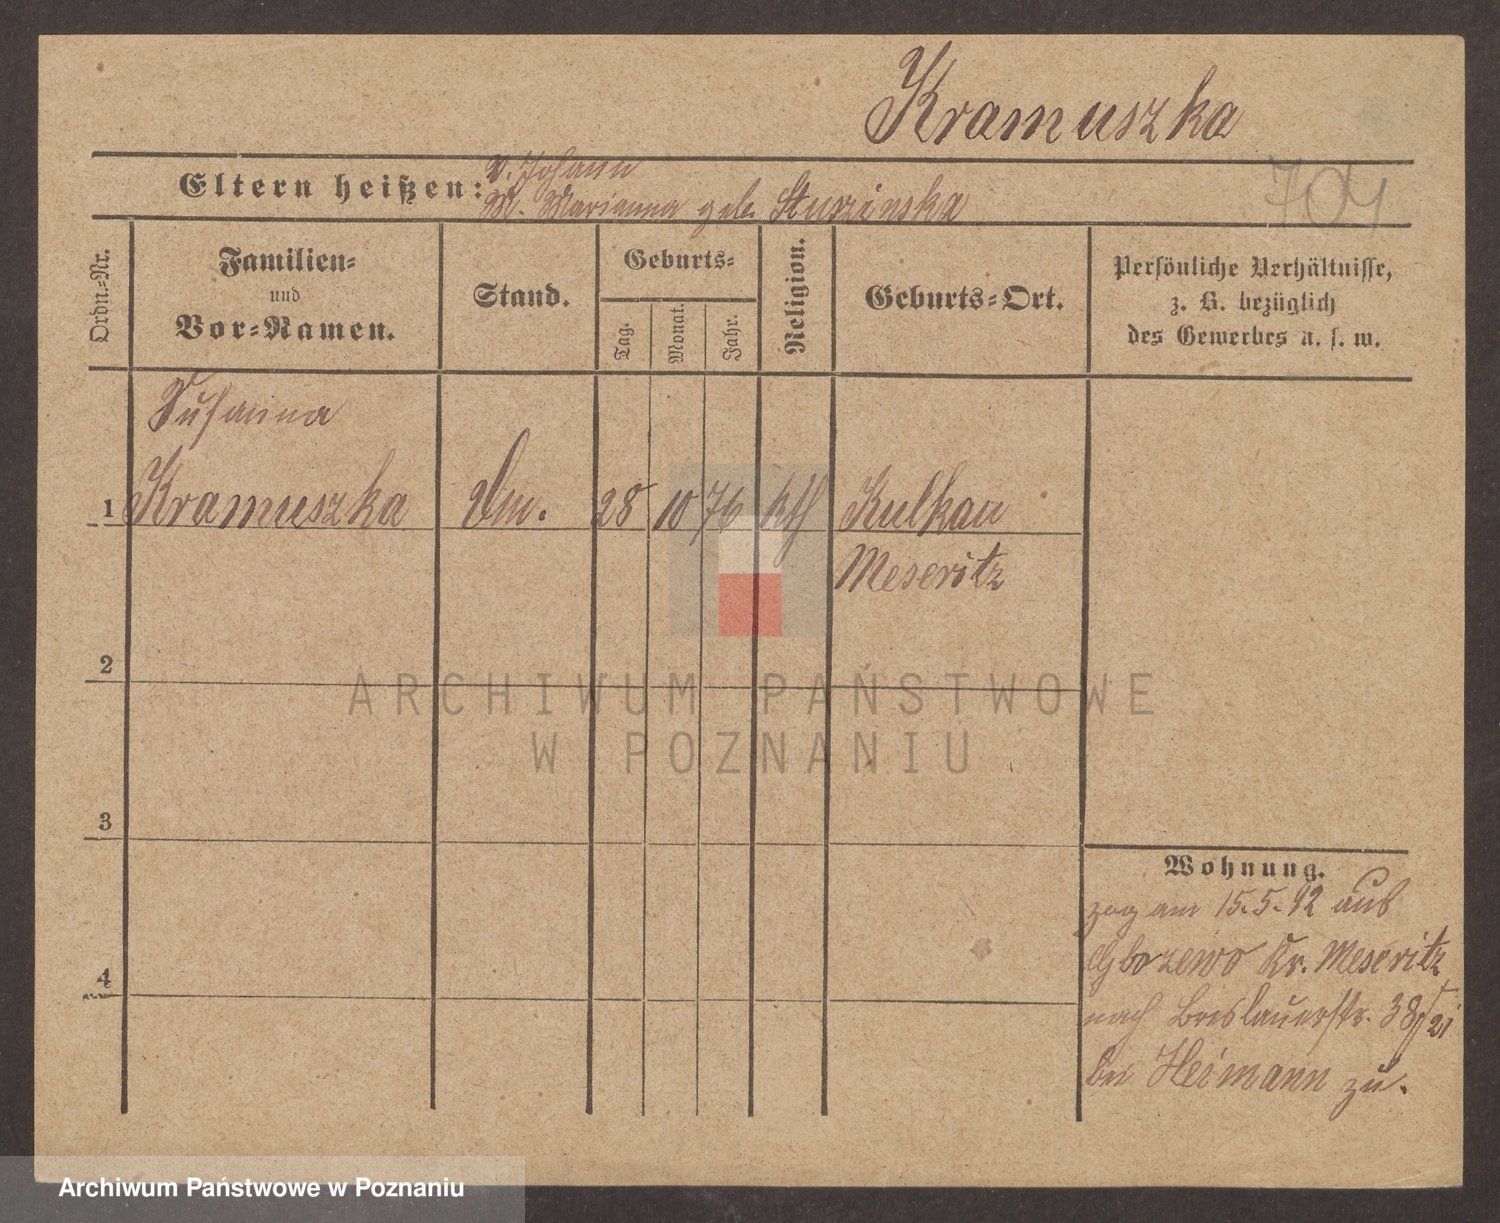 Kramuszka
V. Johann
Eltern heißen:
M. Marianna geb. Sturzinska
704
Ordn.-Nr.
Familien-
und
Vor-Namen.
Stand.
Geburts-
Tag.
Monat.
Jahr.
Religion.
Geburts-Ort.
Persönliche Verhältnisse,
z. B. bezüglich
des Gewerbes u. s. w.
Susanna
1 Kramuszka Dm. 28 10 76 kth Kulkau
Meseritz
2
3
4
Wohnung.
zog am 15.5.92 aus
Gbozewo Kr. Meseritz
nach Breslauerstr. 38
bei Heimann zu.
ARCHIWUM PAŃSTWOWE
W POZNANIU
Archiwum Państwowe w Poznaniu